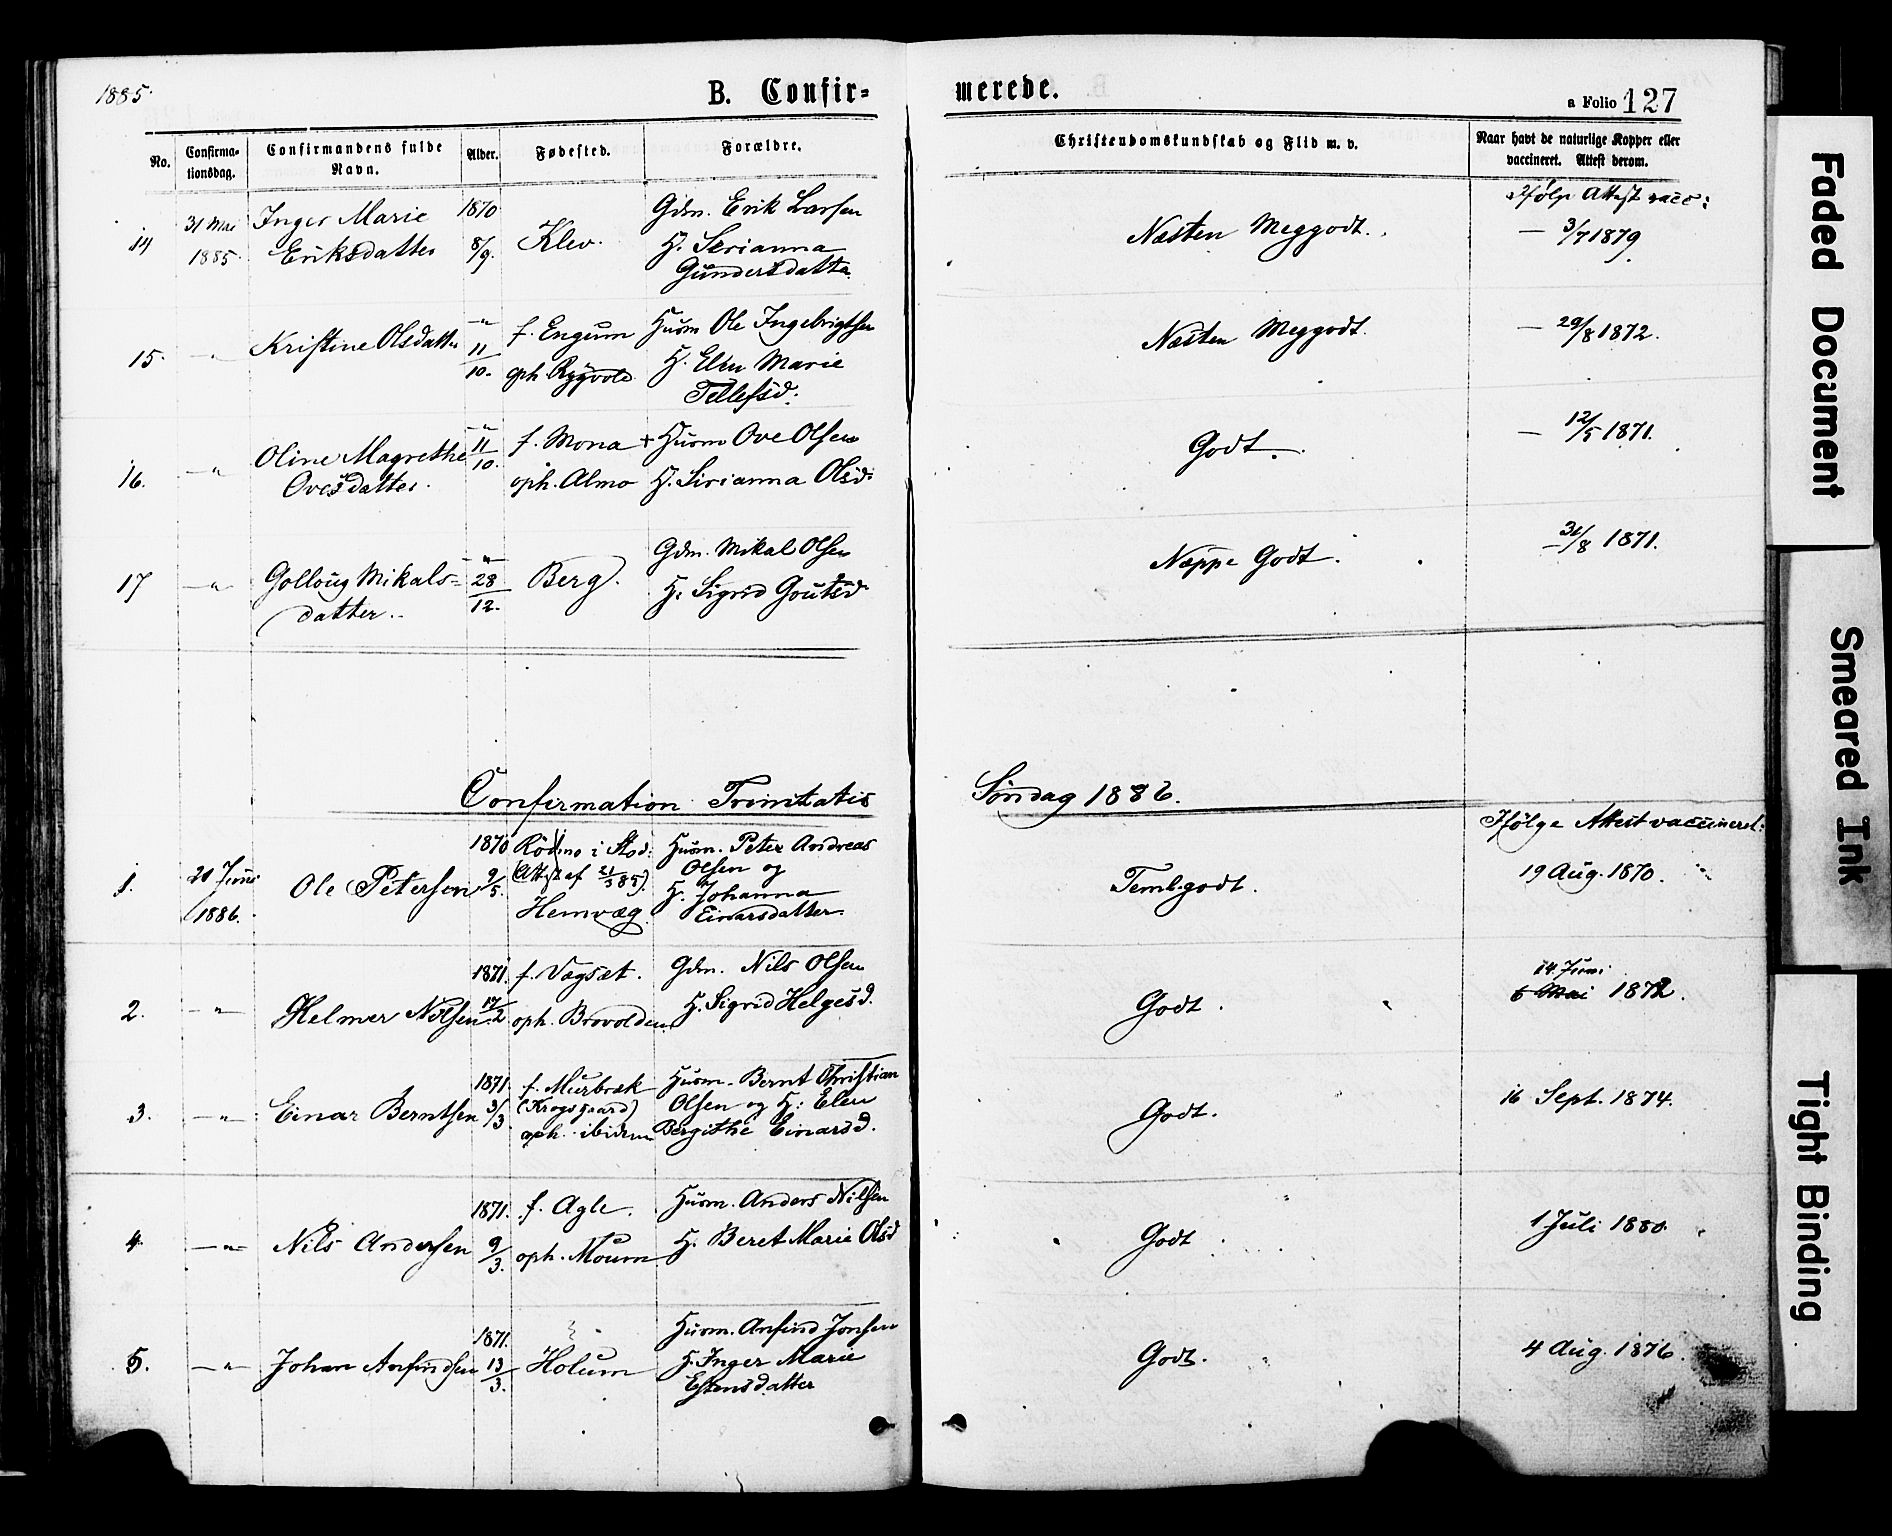 1885.
B. Confir-
merede.
a Folio 127
No.
Confirma-
tionsdag.
Confirmandens fulde
Navn.
Alder.
Fødested.
Forældre.
Christendomskundskab og Flid m. v.
Naar havt de naturlige Kopper eller
vaccineret. Attest derom.
14
31 Mai
1885.
Inger Marie
Eriksdatter
1870
8/9.
Klev.
Gdm. Erik Larsen
H. Serianna
Gundersdatter
Næsten Meggodt.
Ifølge Attest vacc:
— 3/7 1879.
15.
— " —
Kristine Olsdatter
— " —
11/10.
f. Engum
oph. Rygvold
Husm Ole Ingebrigtsen
H. Elen Marie
Tellefsd.
Næsten Meggodt.
— 29/8 1872.
16.
— " —
Oline Magrethe
Ovesdatter.
— " —
11/10.
f. Mona
oph. Almo
+ Husm Ove Olsen
H. Sirianna Olsd.
Godt.
— 12/5 1871.
17
— " —
Golloug Mikals-
datter.
— " —
28/12.
Berg.
Gdm. Mikal Olsen
H. Sigrid Goutsd.
Neppe Godt.
— 31/8 1871.
Confirmation Trinitatis
Søndag 1886.
1.
20 Juni
1886.
Ole Petersen
1870
9/5.
Rödmo i Stod:
(Attest af 21/3 85).
Hemvæg
Husm. Peter Andreas
Olsen og
H. Johanna
Einarsdatter
Teml. godt.
Ifølge Attest vaccineret:
19 Aug. 1870.
2.
— " —
Helmer Nilsen
1871.
17/2.
f. Vagsæt.
oph. Brovolden
Gdm. Nils Olsen
H. Sigrid Helgesd.
Godt.
14. Juni
6 Mai 1872.
3.
— " —
Einar Berntsen
1871.
3/3
f. Murbræk
(Krogsgaard)
oph. ibidem
Husm. Bernt Christian
Olsen og H: Elen
Bergithe Einarsd.
Godt.
16 Sept. 1874.
4.
— " —
Nils Andersen
1871.
9/3.
f. Agle.
oph. Moum
Husm. Anders Nilsen
H. Beret Marie Olsd
Godt
1 Juli 1880.
5.
— " —
Johan Anfindsen
1871.
13/3.
Holum
Husm. Anfind Jonsen
H. Inger Marie
Estensdatter
Godt.
4 Aug. 1876.
Faded Document
Smeared Ink
Tight Binding